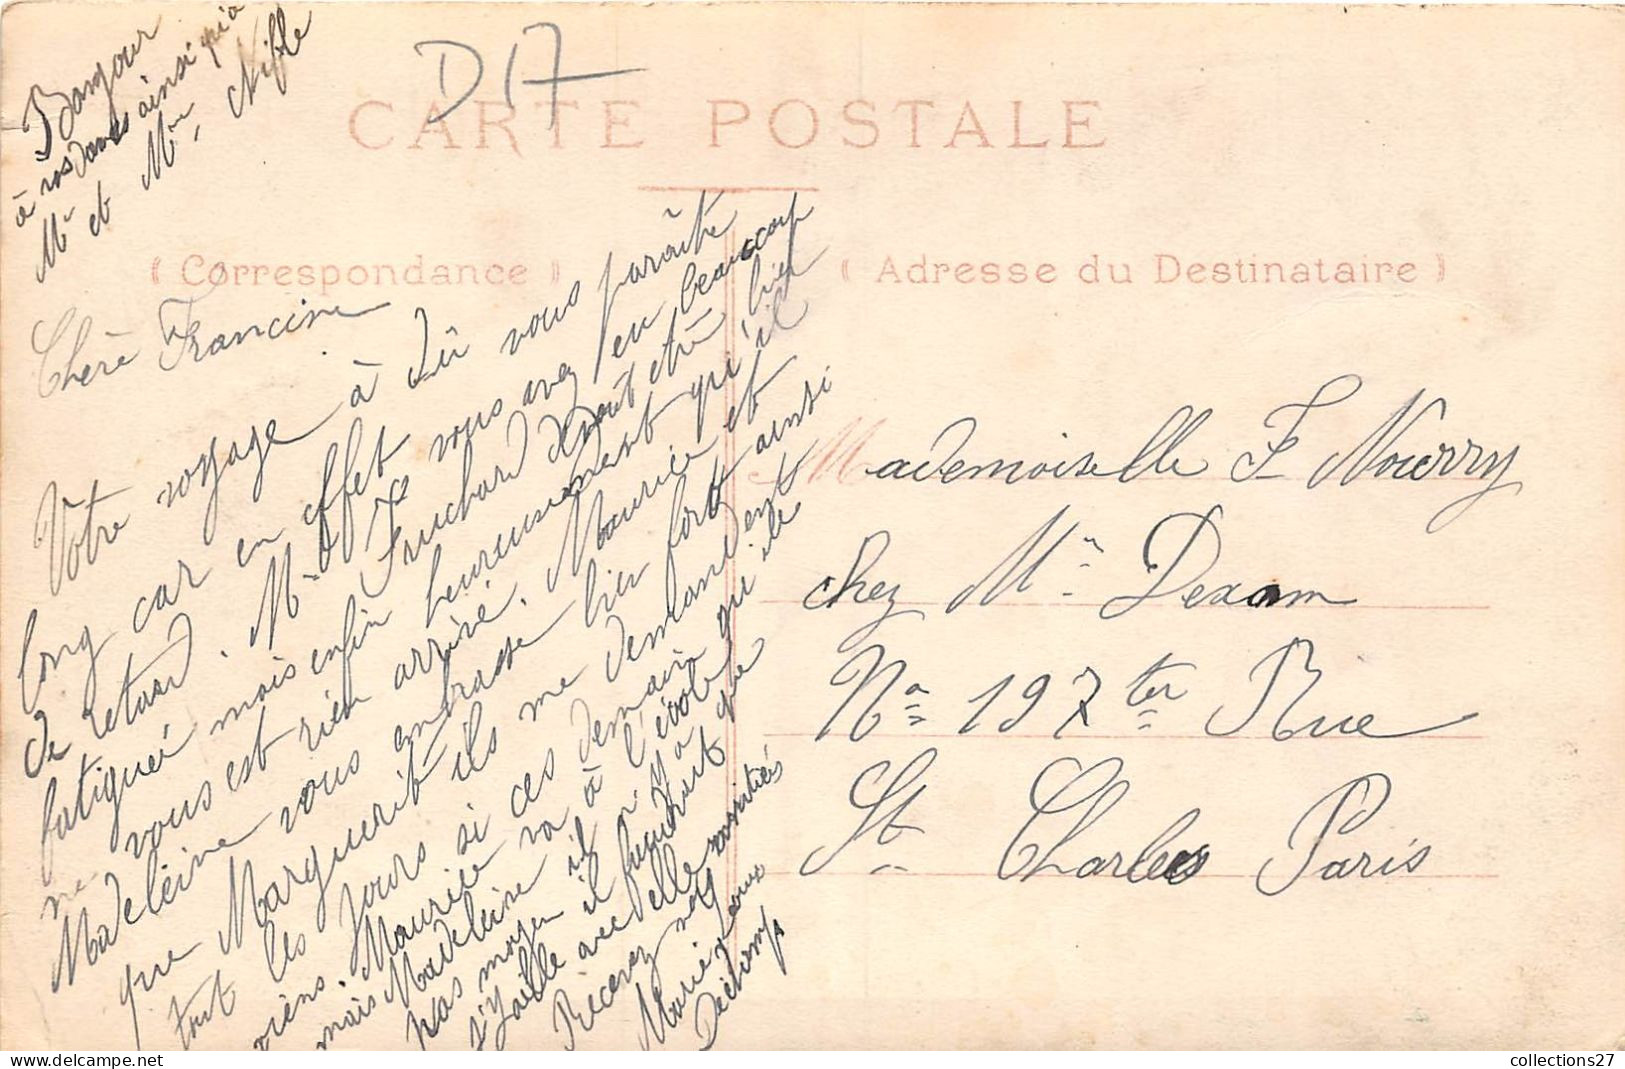 Bonjour
à vos dames ainsi qu'à
Mr et Mme Nifle
D17
CARTE POSTALE
( Correspondance )
( Adresse du Destinataire )
Chère Francine
Votre voyage à dû vous paraître
long car en effet vous avez eu beaucoup
de retard. Mr Fruchard devait être bien
fatigué mais enfin heureusement qu'il
ne vous est rien arrivé. Maurice et
Madeleine vous embrasse bien fort ainsi
que Marguerite ils me demandent
tout les jours si ces demain qui le
viens. Maurice va à l'école
mais Madeleine il n'y a
pas moyen il faudrait que
j'y aille avec elle
Recevez nos amitiés
Marie Louise
Déchamps
Mademoiselle F Nourry
chez Mr Dexam
No 197 ter Rue
St Charles Paris
collections27